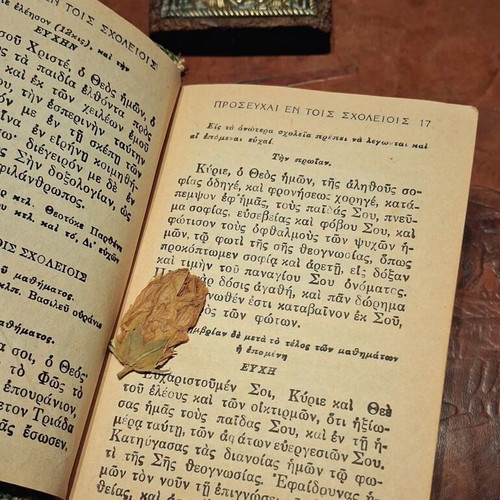 ἐλέησον (12κις), καὶ τὴν
ΕΥΧΗΝ
σοῦ Χριστέ, ὁ Θεὸς ἡμῶν, ὁ
ς τὰ παιδία ἐλθόντα πρὸς
καὶ ἐκ τῶν χειλέων ἐμοῦ
του, τὴν ἑσπερινὴν ταύτην
με ἐν τῇ σκέπῃ τῶν
α ἐν εἰρήνῃ κοιμηθή-
διέγειρόν με δὲ ἐν
ς Σὴν δοξολογίαν, ὡς
φιλάνθρωπος.
ΕΝ ΤΟΙΣ ΣΧΟΛΕΙΟΙΣ
μαθήματος.
Βασιλεῦ οὐράνιε
ήματος.
α σοι, ὁ Θεός
Τὸ Φῶς τὸ
ἐπουράνιον,
ετον Τριάδα
ᾶς ἔσωσεν.
ΠΡΟΣΕΥΧΑΙ ΕΝ ΤΟΙΣ ΣΧΟΛΕΙΟΙΣ 17
Εἰς τὰ ἀνώτερα σχολεῖα πρέπει νὰ λέγωνται καὶ
αἱ ἑπόμεναι εὐχαί.
Τὴν πρωΐαν.
Κύριε, ὁ Θεὸς ἡμῶν, τῆς ἀληθοῦς σο-
φίας ὁδηγέ, καὶ φρονήσεως χορηγέ, κατά-
πεμψον ἐφ' ἡμᾶς, τοὺς παῖδάς Σου, πνεῦ-
μα σοφίας, εὐσεβείας καὶ φόβου Σου, καὶ
φώτισον τοὺς ὀφθαλμοὺς τῶν ψυχῶν ἡ-
μῶν, τῷ φωτὶ τῆς σῆς θεογνωσίας, ὅπως
προκόπτωμεν σοφίᾳ καὶ ἀρετῇ, εἰς δόξαν
καὶ τιμὴν τοῦ παναγίου Σου ὀνόματος.
δόσις ἀγαθή, καὶ πᾶν δώρημα
νωθέν ἐστι καταβαῖνον ἐκ Σοῦ,
τῶν φώτων.
μβρίαν δὲ μετὰ τὸ τέλος τῶν μαθημάτων
ἡ ἑπομένη
ΕΥΧΗ
Εὐχαριστοῦμέν Σοι, Κύριε καὶ Θεὲ
τοῦ ἐλέους καὶ τῶν οἰκτιρμῶν, ὅτι ἠξίω-
σας ἡμᾶς τοὺς παῖδάς Σου, καὶ ἐν τῇ ἡ-
μέρᾳ ταύτῃ, τῶν ἀφάτων εὐεργεσιῶν Σου.
Κατηύγασας τὰς διανοίας ἡμῶν τῷ φω-
τὶ τῆς Σῆς θεογνωσίας. Ἐφαίδρυνας
τὸν νοῦν τῇ ἐπιγνώσει
θείας, καὶ